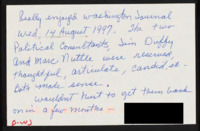 Really enjoyed Washington Journal
Wed, 14 August 1997. The two
Political Consultants, Jim Duffy
and Marc Nuttle were reserved
thoughtful, articulate, candid, &
lots made sense.
Wouldn't hurt to get them back
on in a few months —